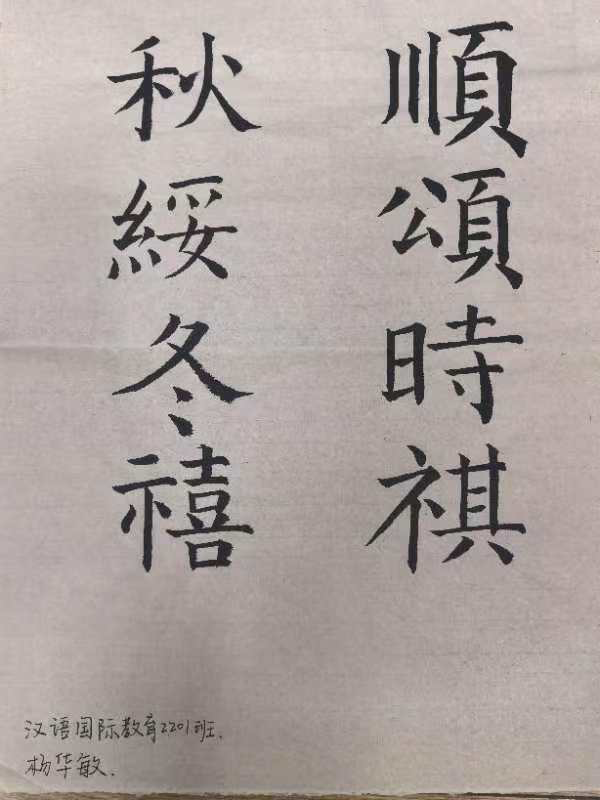 順頌時祺
秋綏冬禧
汉语国际教育2201班.
杨华敏.